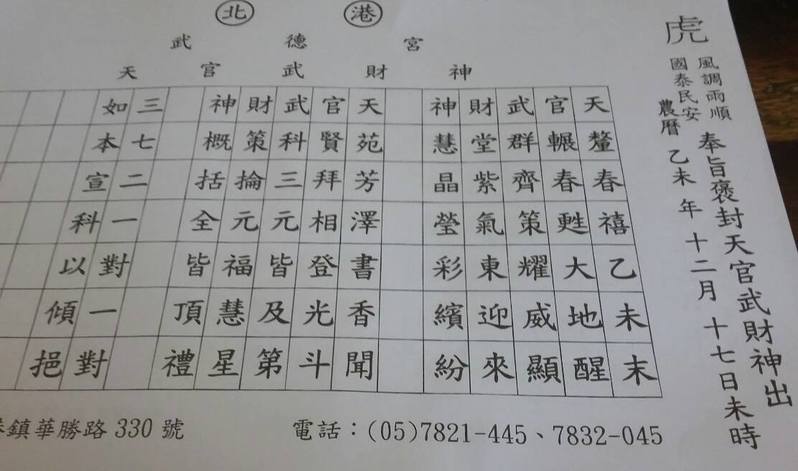 北港
武德宮
天官武財神
虎
風調雨順
國泰民安
奉旨褒封天官武財神出
農曆乙未年十二月十七日未時
天釐春禧乙未末
官輾春甦大地醒
武群齊策耀威顯
財堂紫氣東迎來
神慧晶瑩彩繽紛
天苑芳澤書香聞
官賢拜相登光斗
武科三元皆及第
財策掄元福慧星
神概括全皆頂禮
三七二一對一對
如本宣科以傾挹
鎮華勝路330號 電話：(05)7821-445、7832-045